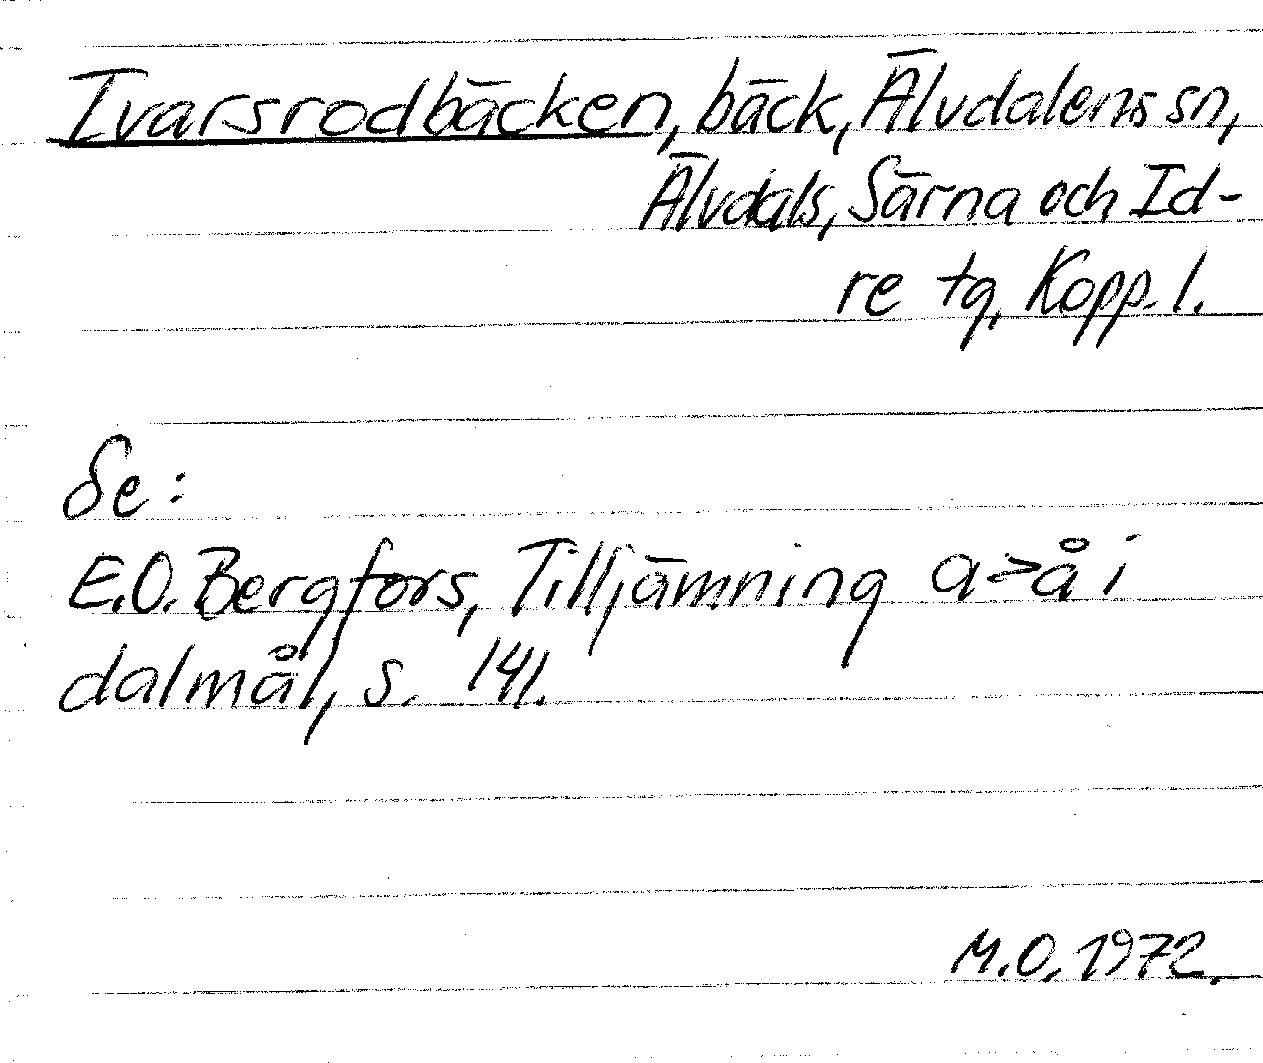 Ivarsrodbäcken, bäck, Älvdalens sn,
Älvdals, Särna och Id-
re tg, Kopp. l.
Se:
E.O. Bergfors, Tilljämning a>å i
dalmål, s. 141.
M.O. 1972.